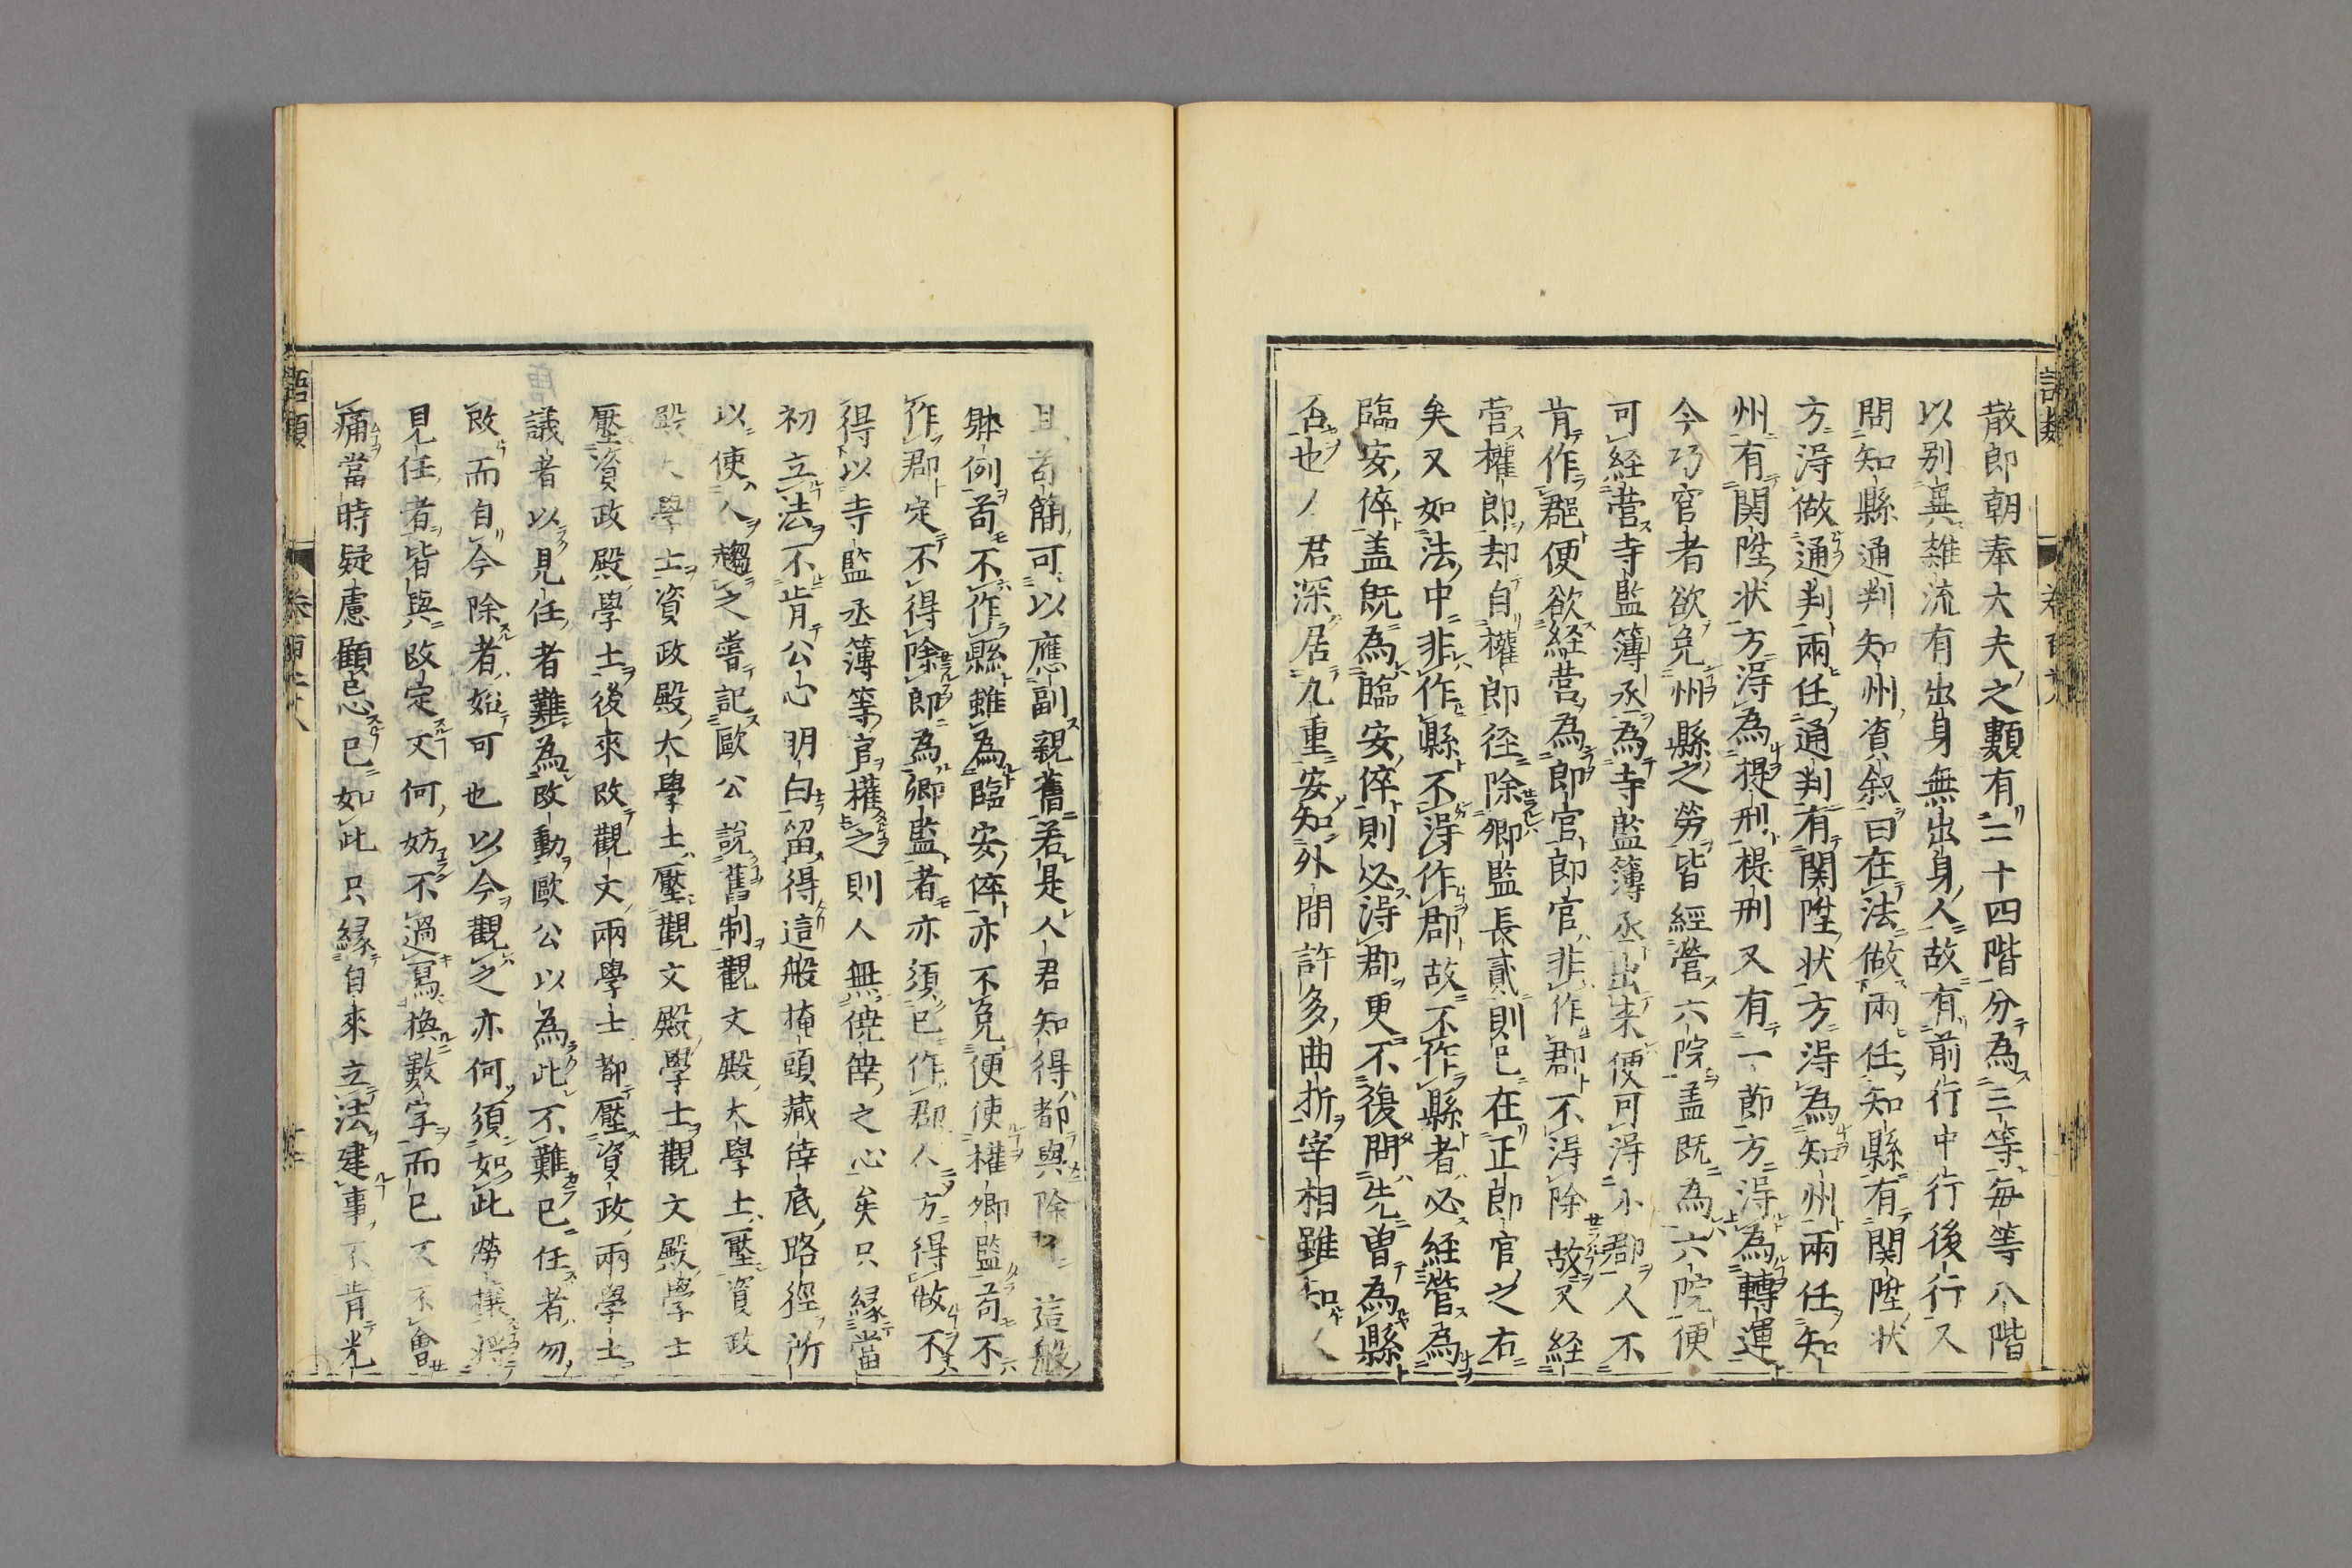 散郎朝奉大夫之類有二十四階分為三等毎等八階
以别異雜流有出身無出身人故有前行中行後行又
問知縣通判知州資叙曰在法做兩任知縣有関陞状
方得做通判兩任通判有関陞状方得為知州兩任知
州有関陞状方得為提刑提刑又有一節方得為轉運
今巧宦者欲免州縣之勞皆經營六院盖既為六院便
可経営寺監簿丞為寺監簿丞出来便可得小郡人不
肯作郡便欲経営為郎官郎官非作郡不得除故又経
営權郎却自權郎径除卿監長貳則已在正郎官之右
矣又如法中非作縣不得作郡故不作縣者必経管為
臨安倅盖既為臨安倅則必得郡更不復問先曽為縣
否也人君深居九重安知外間許多曲折宰相雖知又
且苟簡可以應副親舊若是人君知得都與除 這般
躰例苟不作縣雖為臨安倅亦不免便使權卿監苟不
作郡定不得除郎為卿監者亦須已作郡人方得做不
得以寺監丞簿等官權之則人無僥倖之心矣只緣當
初立法不肯公心明白留得這般掩頭藏倖底路徑所
以使人趨之嘗記歐公說舊制觀文殿大學士壓資政
殿大學士資政殿大學士壓觀文殿學士觀文殿學士
壓資政殿學士後來改觀文兩學士都壓資政兩學士
議者以見任者難為改動歐公以為此不難已任者勿
改而自今除者始可也以今觀之亦何須如此勞攘將
見任者皆與改定又何妨不過寫換數字而已又不會
痛當時疑慮顧忌已如此只緣自來立法建事不肯光
語類 卷百二十八